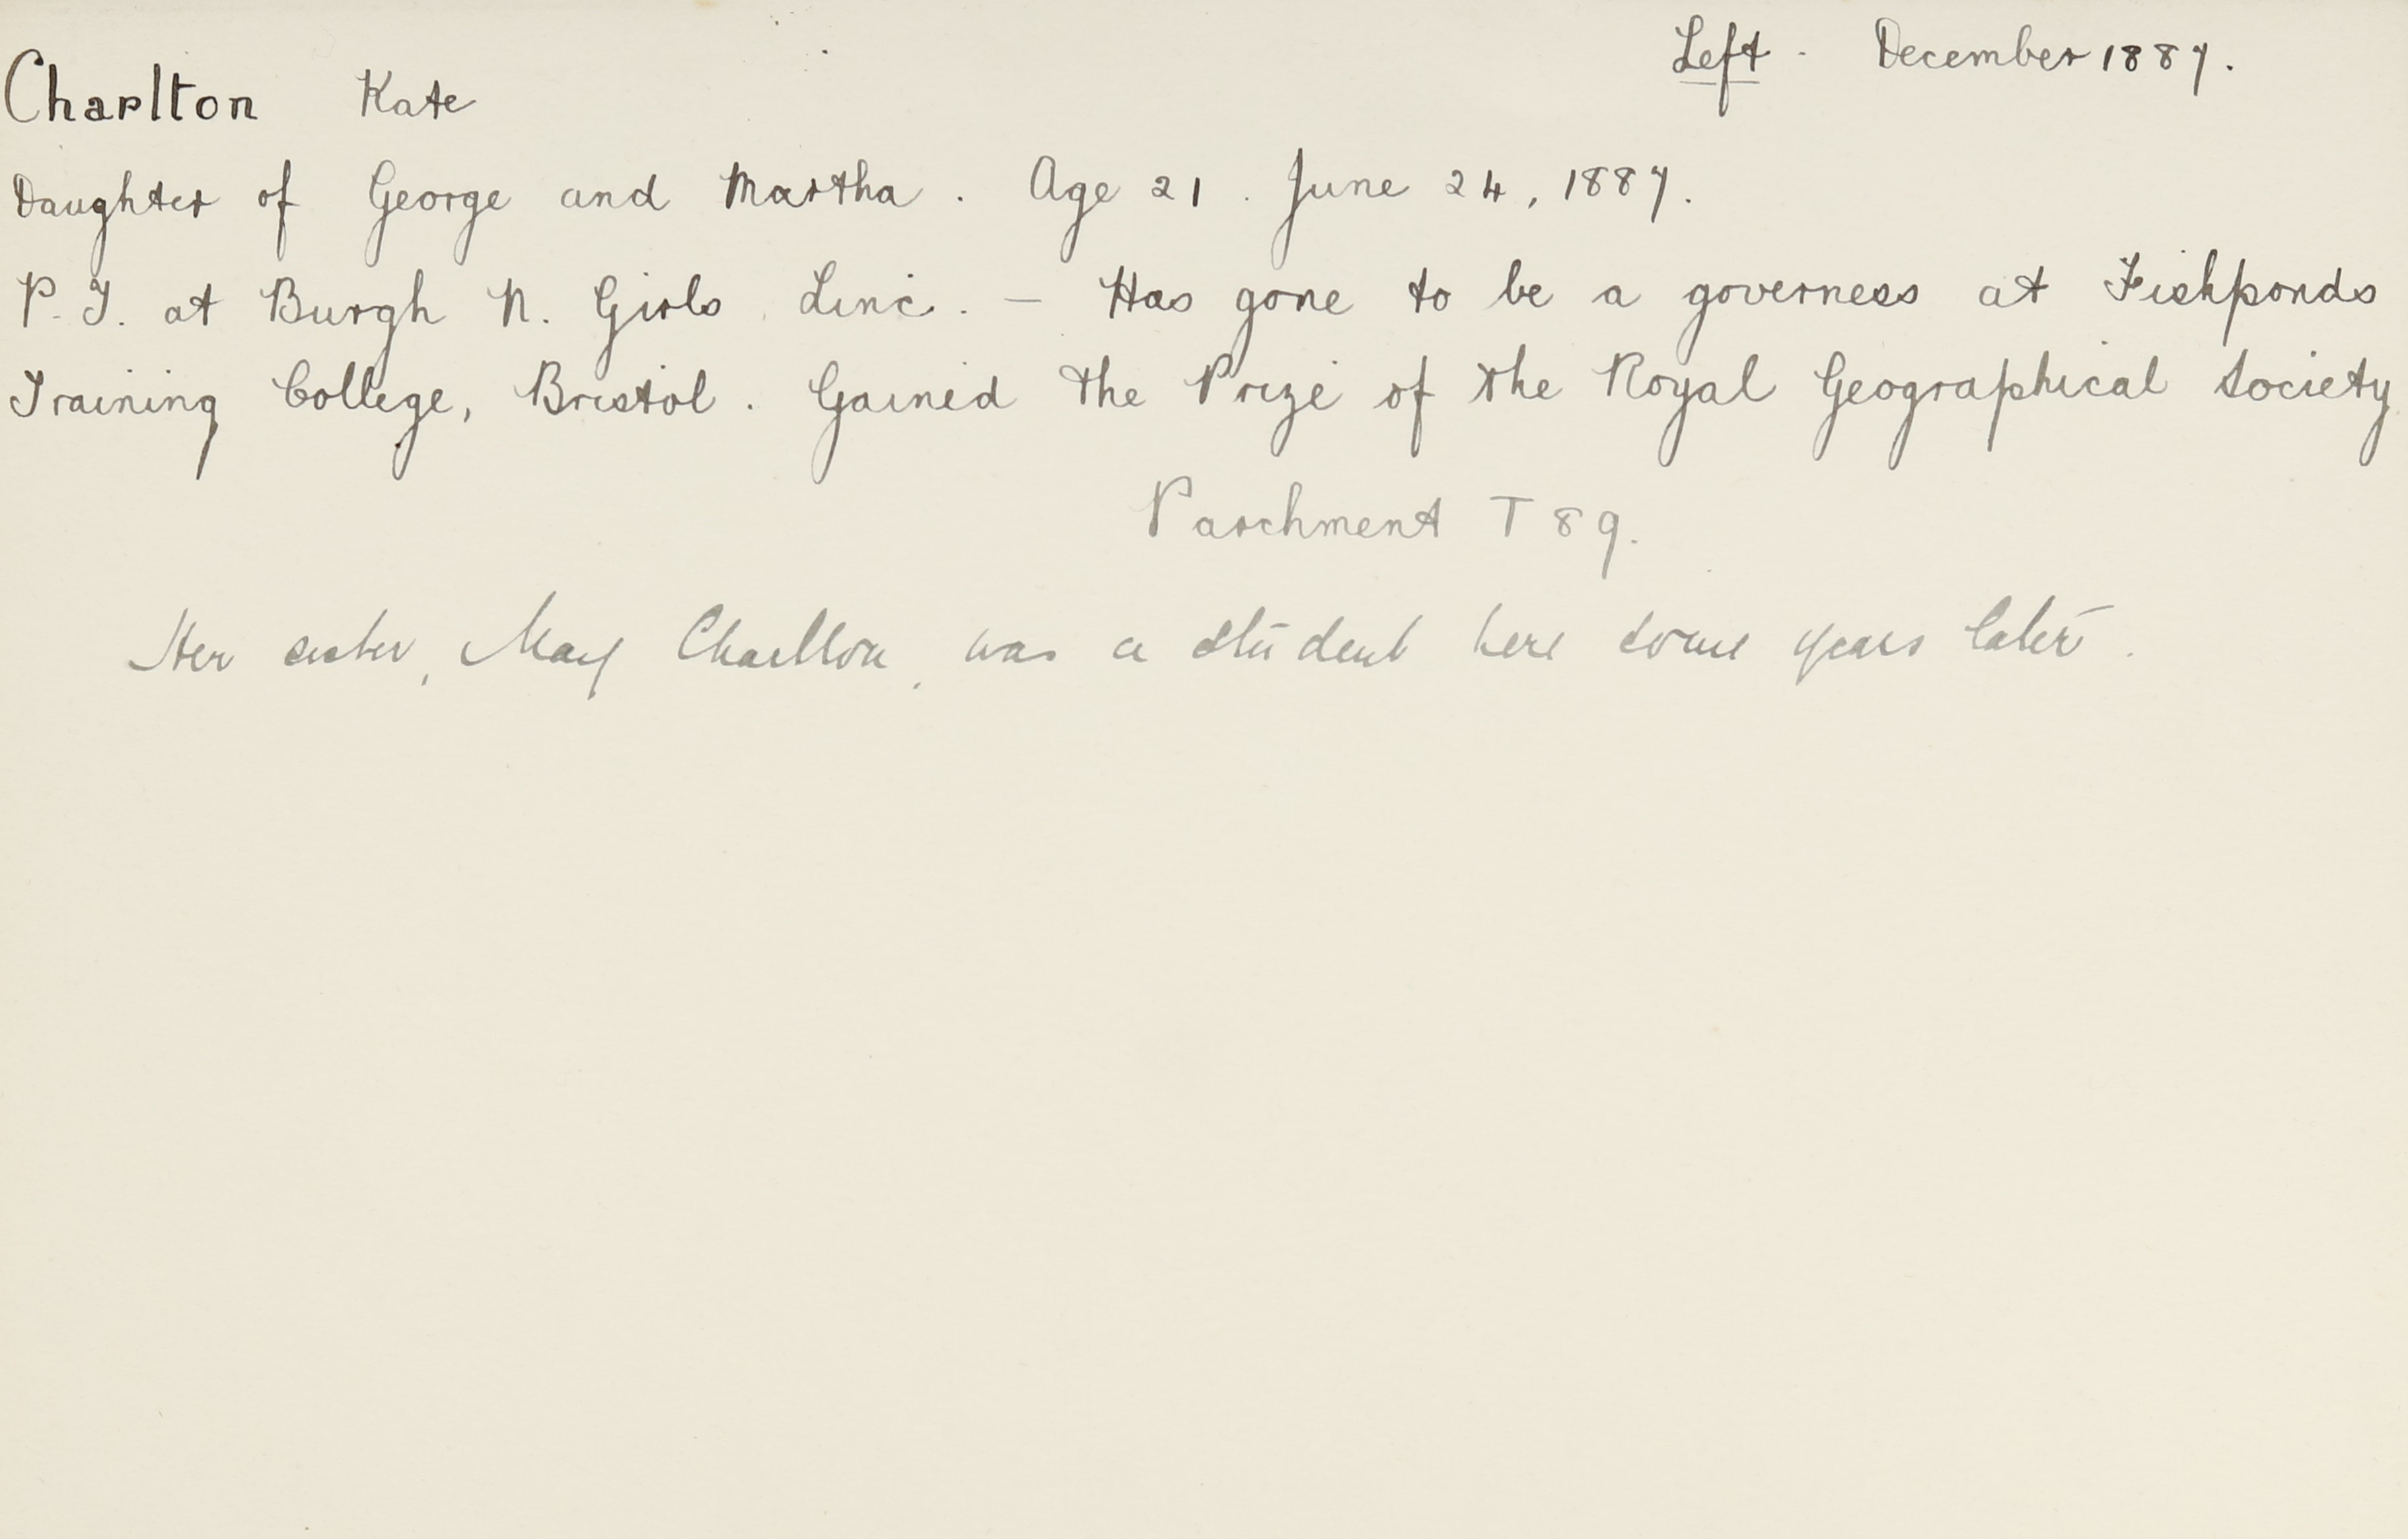 Left - December 1887.
Charlton Kate
Daughter of George and Martha. Age 21. June 24, 1887.
P.T. at Burgh N. Girls. Linc. – Has gone to be a governess at Fishponds
Training College, Bristol. Gained the Prize of the Royal Geographical Society
Parchment T 89.
Her sister, May Charlton, was a student here some years later.